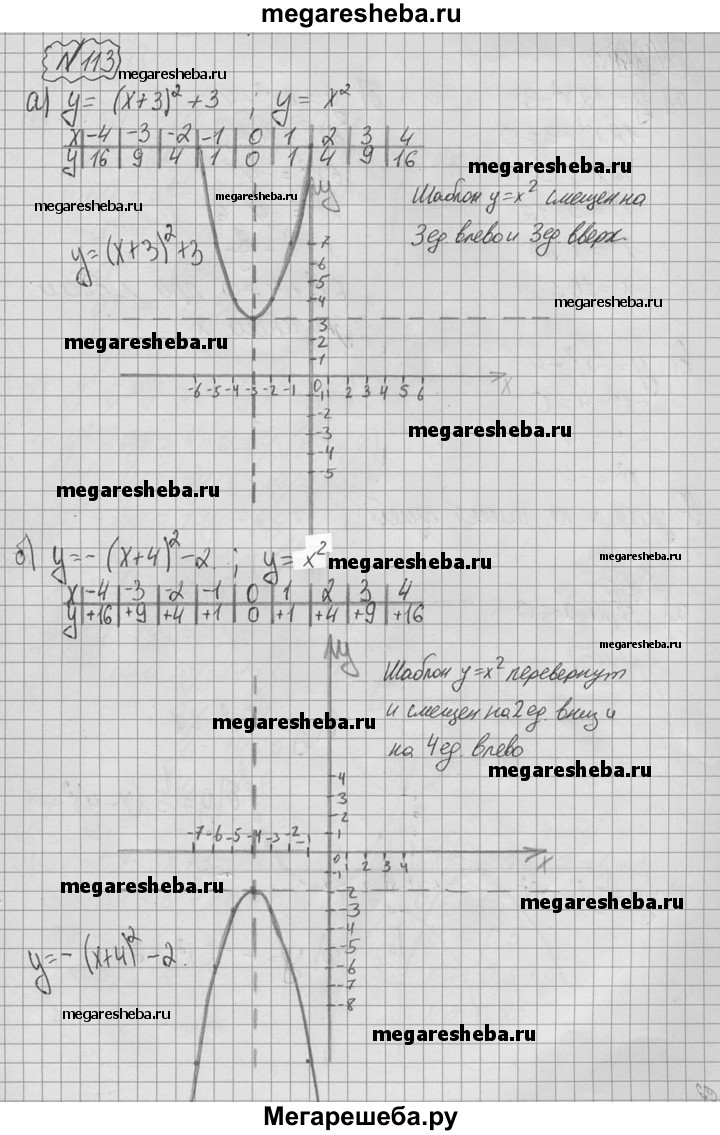 megaresheba.ru
N 113
megaresheba.ru
а) y = (x+3)² + 3 ; y = x²
x -4 -3 -2 -1 0 1 2 3 4
y 16 9 4 1 0 1 4 9 16
megaresheba.ru
megaresheba.ru
megaresheba.ru
y
Шаблон y=x² смещен на
3ед влево и 3ед вверх.
y=(x+3)²+3
7
6
5
4
megaresheba.ru
3
2
megaresheba.ru
1
-6 -5 -4 -3 -2 -1 0 1 2 3 4 5 6 x
-1
-2
-3
megaresheba.ru
-4
-5
megaresheba.ru
б) y = - (x+4)² - 2 ; y = x²
megaresheba.ru
megaresheba.ru
x -4 -3 -2 -1 0 1 2 3 4
y +16 +9 +4 +1 0 +1 +4 +9 +16
megaresheba.ru
y
Шаблон y=x² перевернут
и смещен на 2ед. вниз и
megaresheba.ru
на 4ед. влево
megaresheba.ru
4
3
2
1
-7 -6 -5 -4 -3 -2 -1
0 1 2 3 4 x
-1
megaresheba.ru
-2
megaresheba.ru
-3
-4
y = - (x+4)² - 2.
-5
-6
-7
-8
megaresheba.ru
megaresheba.ru
Мегарешеба.ру